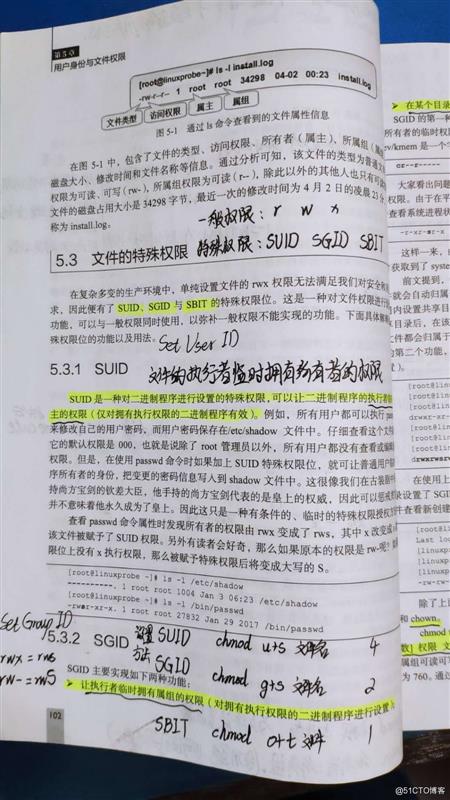 第5章
用户身份与文件权限
[root@linuxprobe~]# ls -l install.log
-rw-r--r-- 1 root root 34298 04-02 00:23 install.log
文件类型 访问权限 属主 属组
图 5-1 通过 ls 命令查看到的文件属性信息
在图 5-1 中，包含了文件的类型、访问权限、所有者（属主）、所属组（属
磁盘大小、修改时间和文件名称等信息。通过分析可知，该文件的类型为普通文
权限为可读、可写（rw-），所属组权限为可读（r--），除此以外的其他人也只有可读
文件的磁盘占用大小是 34298 字节，最近一次的修改时间为 4 月 2 日的凌晨 23 分
称为 install.log。
一般权限：r w x
特殊权限：SUID SGID SBIT
5.3 文件的特殊权限
在复杂多变的生产环境中，单纯设置文件的 rwx 权限无法满足我们对安全和
求，因此便有了 SUID、SGID 与 SBIT 的特殊权限位。这是一种对文件权限进行
功能，可以与一般权限同时使用，以弥补一般权限不能实现的功能。下面具体解
殊权限位的功能以及用法。
Set User ID
5.3.1 SUID
文件的执行者临时拥有所有者的权限
SUID 是一种对二进制程序进行设置的特殊权限，可以让二进制程序的执行者
主的权限（仅对拥有执行权限的二进制程序有效）。例如，所有用户都可以执行
来修改自己的用户密码，而用户密码保存在/etc/shadow 文件中。仔细查看这个文件
它的默认权限是 000，也就是说除了 root 管理员以外，所有用户都没有查看或编辑
权限。但是，在使用 passwd 命令时如果加上 SUID 特殊权限位，就可让普通用户
序所有者的身份，把变更的密码信息写入到 shadow 文件中。这很像我们在古装剧
持尚方宝剑的钦差大臣，他手持的尚方宝剑代表的是皇上的权威，因此可以惩戒
并不意味着他永久成为了皇上。因此这只是一种有条件的、临时的特殊权限授权
查看 passwd 命令属性时发现所有者的权限由 rwx 变成了 rws，其中 x 改变成
该文件被赋予了 SUID 权限。另外有读者会好奇，那么如果原本的权限是 rw-呢？
限位上没有 x 执行权限，那么被赋予特殊权限后将变成大写的 S。
[root@linuxprobe ~]# ls -l /etc/shadow
----------. 1 root root 1004 Jan 3 06:23 /etc/shadow
[root@linuxprobe ~]# ls -l /bin/passwd
-rwsr-xr-x. 1 root root 27832 Jan 29 2017 /bin/passwd
Set Group ID
5.3.2 SGID
设置 SUID chmod u+s 文件名 4
方法 SGID chmod g+s 文件名 2
rwx = rws
rw- = rwS
SGID 主要实现如下两种功能：
➢ 让执行者临时拥有属组的权限（对拥有执行权限的二进制程序进行设置
SBIT chmod o+t 文件 1
102
在某个目录
SGID 的第一种
所有者的临时权限
ev/kmem 是一个
cr--r-----
大家看出问题
权限。由于在平
查看系统进程状
-r-xr-sr-x
这样一来，由
获取到了 syste
前文提到，
就会自动归属
内设置共享目
目录后，在该
文件都会归属于
第二个功能，
[root@linux
[root@linux
[root@linux
[root@linux
drwxrwsrwx
在使用上
录设置了 SG
件查看新创建
[root@linux
Last lo
[root@l
[root@l
[root@l
-rw-rw-
除了上
和 chown。
chmod
数] 权限 文
属组可读可写
为 760。通过
@51CTO博客